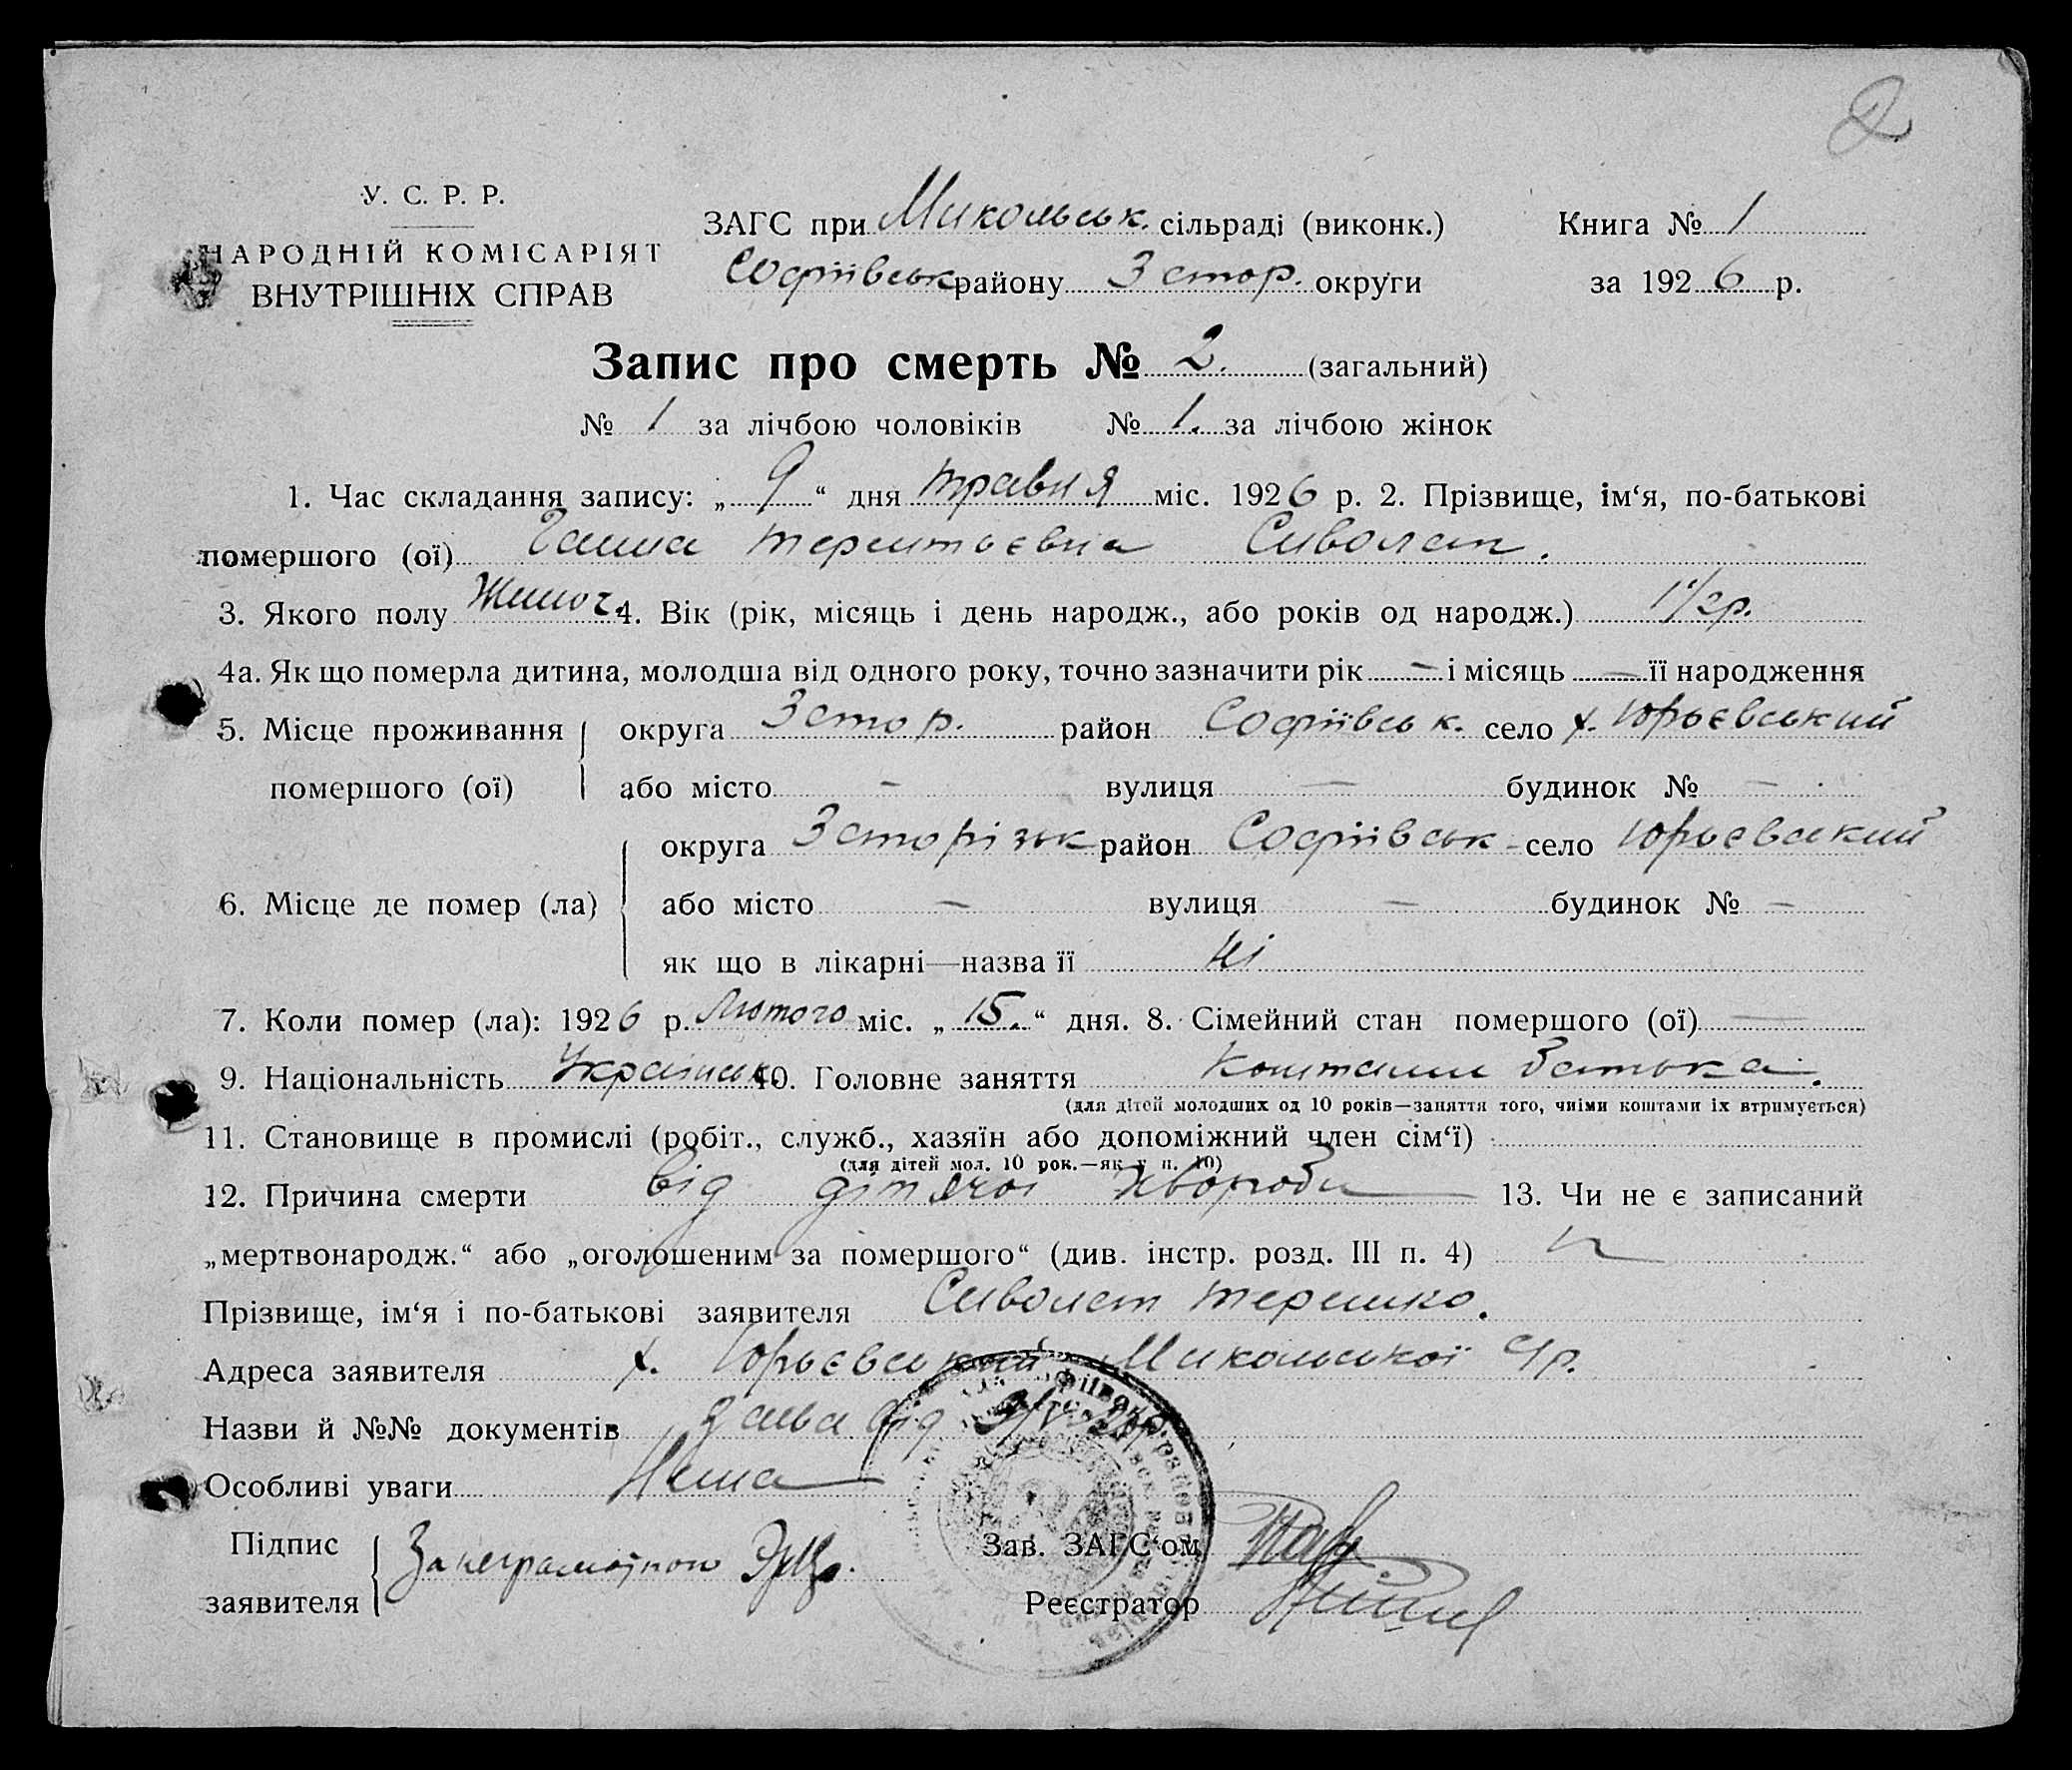 2
У. С. Р. Р.
НАРОДНІЙ КОМІСАРІЯТ
ВНУТРІШНІХ СПРАВ
ЗАГС при Микольськ. сільраді (виконк.)
Софіївськ району Зстор. округи
Книга № 1
за 1926 р.
Запис про смерть № 2. (загальний)
№ 1 за лічбою чоловіків № 1. за лічбою жінок
1. Час складання запису: „ 9 “ дня травня міс. 1926 р. 2. Прізвище, ім‘я, по-батькові
помершого (ої) Ганна Терентьєвна Сиволап.
3. Якого полу Жиноч. 4. Вік (рік, місяць і день народж., або років од народж.) 1 1/2 р.
4а. Як що померла дитина, молодша від одного року, точно зазначити рік — і місяць — її народження
5. Місце проживання помершого (ої) округа Зстор. район Софіївськ. село х. Юрьєвський
або місто - вулиця — будинок № —
6. Місце де помер (ла) округа Зсторізьк район Софіївськ - село Юрьєвский
або місто — вулиця — будинок № —
як що в лікарні—назва її Ні
7. Коли помер (ла): 1926 р. Лютого міс. „ 15. “ дня. 8. Сімейний стан помершого (ої) —
9. Національність Україньск. 10. Головне заняття Коштами Батька.
(для дітей молодших од 10 років—заняття того, чиїми коштами їх втримується)
11. Становище в промислі (робіт., служб., хазяїн або допоміжний член сім‘ї)
(для дітей мол. 10 рок.—як у п. 10)
12. Причина смерти від дітячої хвороби 13. Чи не є записаний
„мертвонародж.“ або „оголошеним за помершого“ (див. інстр. розд. III п. 4)
Прізвище, ім‘я і по-батькові заявителя Сиволап Терешко.
Адреса заявителя х. Юрьєвський Микольської
Назви й №№ документів Заява від
Особливі уваги Нема
Підпис заявителя За неграмотного
Зав. ЗАГС‘ом
Реєстратор